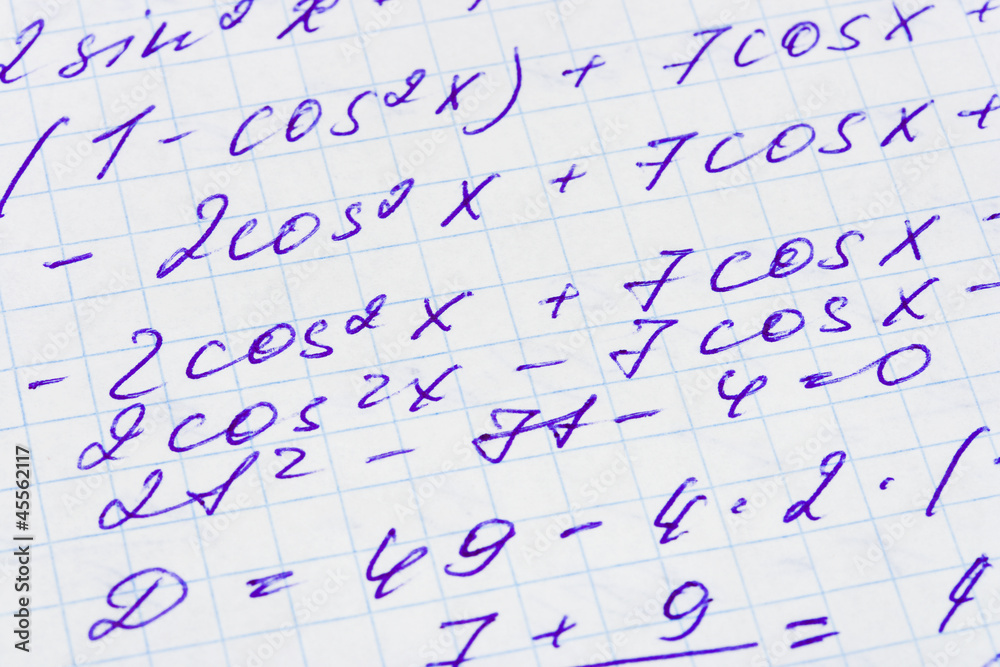 2 sin² x +
(1 - cos²x) + 7cosx +
- 2cos²x + 7cosx +
- 2cos²x + 7cosx -
2cos²x - 7cosx -
2t² - 7t - 4 = 0
D = 49 - 4 · 2 · (-
7 + 9 =
Adobe Stock | #45562117